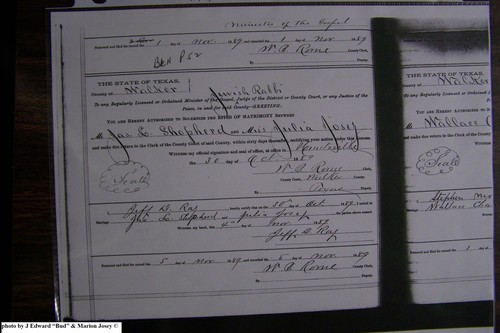 Minister of the Gospel
Returned and filed for record the 1 day of Nov 1889 and recorded the 1 day of Nov 1889
W. A. Rome County Clerk,
Deputy.
Bk H P 52
THE STATE OF TEXAS,
County of Walker
Jewish Rabbi
To any Regularly Licensed or Ordained Minister of the Gospel, Judge of the District or County Court, or any Justice of the
Peace, in and for said County—GREETING.
YOU ARE HEREBY AUTHORIZED TO SOLEMNIZE THE RITES OF MATRIMONY BETWEEN
Mr. Jas E. Shepherd and Miss Julia Josey
and make due return to the Clerk of the County Court of said County, within sixty days thereafter, certifying your action under this license.
WITNESS my official signature and seal of office, at office in Huntsville
the 30 day of Oct 1889
Seal
W. A. Rome
County Clerk, Walker County
Deputy.
I, Jeff D. Ray hereby certify that on the 30th day of Oct 1889, I united in
Marriage Jas E. Shepherd and Julia Josey the parties above named.
Witness my hand, this 4th day of Nov 1889
Jeff D. Ray
Returned and filed for record the 5 day of Nov 1889, and recorded the 6 day of Nov 1889
W. A. Rome County Clerk,
Deputy.
THE STATE OF
County of Walker
To any Regularly
YOU ARE HEREBY A
Mr. Wallace
and make due return to the Clerk
Seal
I, Stephen
Marriage Wallace
Returned and filed for record the
photo by J Edward "Bud" & Marion Josey ©